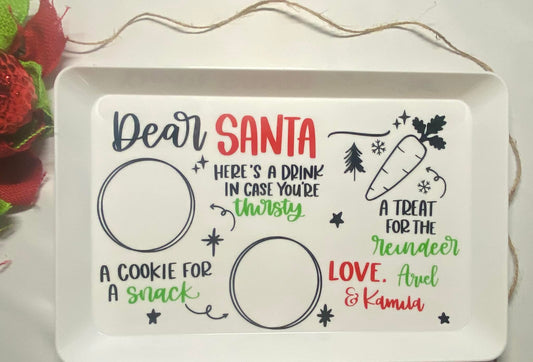 Dear SANTA
HERE'S A DRINK
IN CASE YOU'RE
thirsty
A TREAT
FOR THE
reindeer
A COOKIE FOR
A snack
LOVE. Ariel
& Kamila